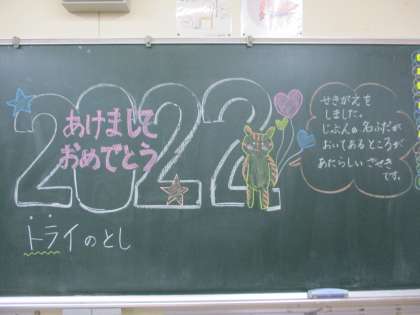 2022
あけまして
おめでとう
トライのとし
せきがえを
しました。
じぶんの名ふだが
おいてあるところが
あたらしいざせき
です。